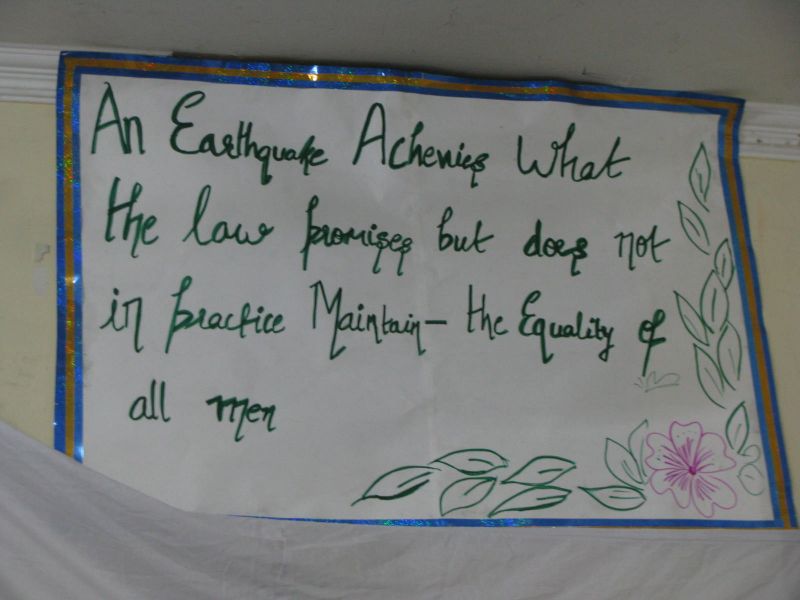 An Earthquake Achenies What
the law promises but does not
in practice Maintain - the Equality of
all men